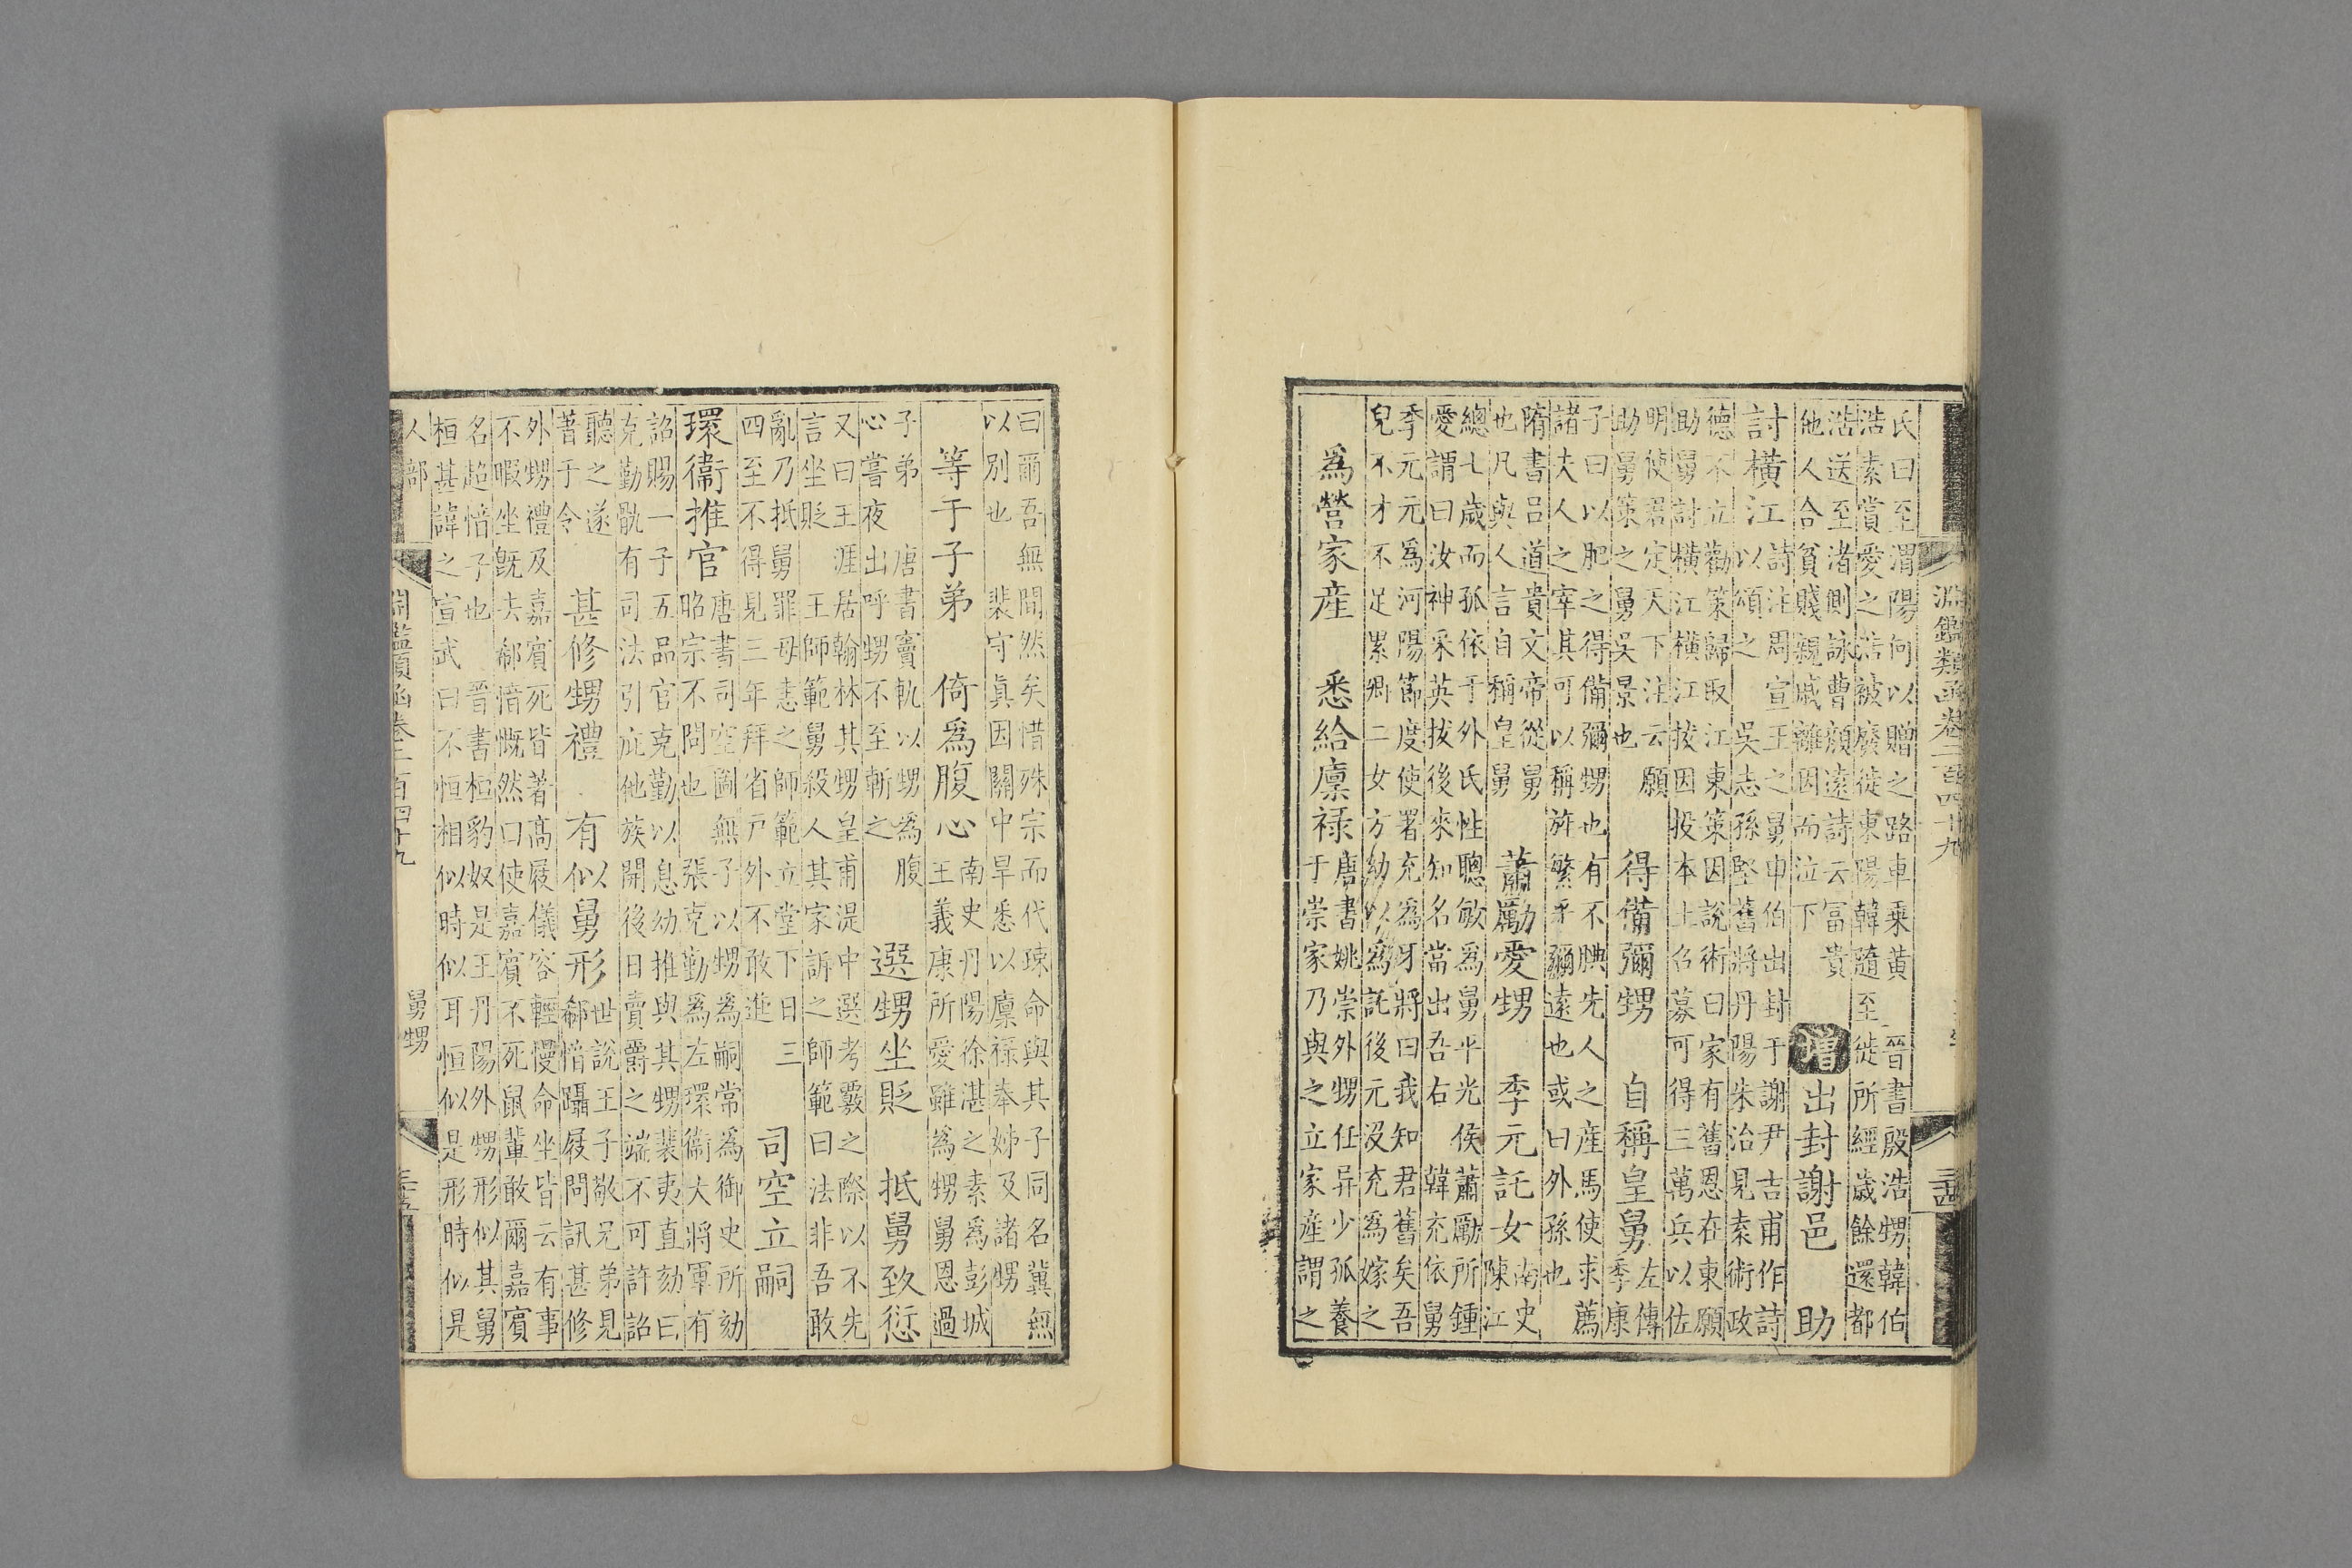 淵鑑類函卷二百四十九
氏曰至渭陽何以贈之路車乗黄 晉書殷浩甥韓伯
浩素賞愛之浩被廢徙東陽韓隨至徙所經歲餘還都
浩送至渚側詠曹顏遠詩云富貴
他人合貧賤親戚離因而泣下
增 出封謝邑 助
討橫江
詩注周宣王之舅申伯出封于謝尹吉甫作詩
以頌之 吳志孫堅舊將丹陽朱治見袁術政
德不立勸策歸取江東策因說術曰家有舊恩在東願
助舅討橫江橫江拔因投本土召募可得三萬兵以佐
明使君定天下注云願
助舅策之舅吳景也
得備彌甥 自稱皇舅
左傳
季康
子曰以肥之得備彌甥也有不腆先人之産馬使求薦
諸夫人之宰其可以稱旌繁乎彌遠也或曰外孫也
隋書呂道貴文帝從舅
也凡與人言自稱皇舅
蕭勵愛甥 季元託女
南史
陳江
總七歲而孤依于外氏性聰敏爲舅平光侯蕭勵所鍾
愛謂曰汝神采英拔後來知名當出吾右 韓充依舅
季元元爲河陽節度使署充爲牙將曰我知君舊矣吾
兒不才不足累卿二女方幼以爲託後元沒充爲嫁之
爲營家産 悉給廪祿
唐書姚崇外甥任异少孤養
于崇家乃與之立家産謂之
曰爾吾無間然矣惜殊宗而代疎命與其子同名冀無
以別也 裴守眞因關中旱悉以廪祿奉姊及諸甥
等于子弟 倚爲腹心
南史丹陽徐湛之素爲彭城
王義康所愛雖爲甥舅恩過
子弟 唐書竇軌以甥爲腹
心嘗夜出呼甥不至斬之
選甥坐貶 抵舅致愆
又曰王涯居翰林其甥皇甫湜中選考覈之際以不先
言坐貶 王師範舅殺人其家訴之師範曰法非吾敢
亂乃抵舅罪母恚之師範立堂下日三
四至不得見三年拜省戶外不敢進
司空立嗣
環衞推官
唐書司空圖無子以甥爲嗣常爲御史所劾
昭宗不問也 張克勤爲左環衞大將軍有
詔賜一子五品官克勤以息幼推與其甥裴夷直劾曰
克勤骫有司法引庇他族開後日賣爵之端不可許詔
聽之遂
著于令
甚修甥禮 有似舅形
世說王子敬兄弟見
郗愔躡屐問訊甚修
外甥禮及嘉賓死皆著高屐儀容輕慢命坐皆云有事
不暇坐既去郗愔慨然曰使嘉賓不死鼠輩敢爾嘉賓
名超愔子也 晉書桓豹奴是王丹陽外甥形似其舅
桓甚諱之宣武曰不恒相似時似耳恒似是形時似是
人部 淵鑑類函卷二百四十九 舅甥 三十五